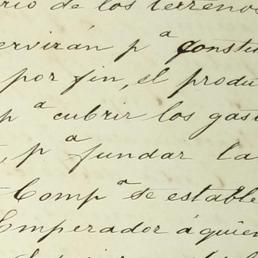 rio de los terrenos
ervirán pª constru
por fin, el produ
pª cubrir los gas
, pª fundar la
Compª se estable
Emperador á quien